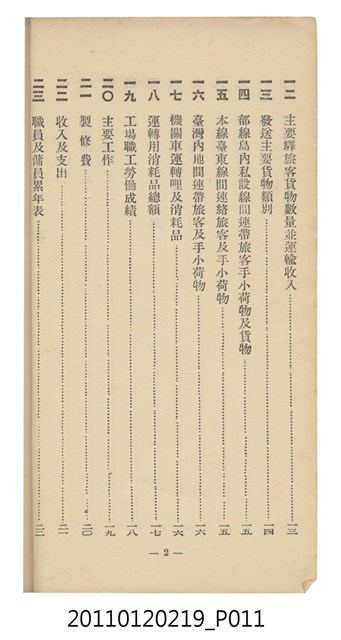 一二 主要驛旅客貨物數量並運輸收入 一三
一三 發送主要貨物類別 一四
一四 部線島內私設線間連帶旅客手小荷物及貨物 一五
一五 本線臺東線間連絡旅客及手小荷物 一五
一六 臺灣內地間連帶旅客及手小荷物 一六
一七 機關車運轉哩及消耗品 一六
一八 運轉用消耗品總額 一七
一九 工場職工勞働成績 一八
二〇 主要工作 一九
二一 製修費 二〇
二二 收入及支出 二一
二三 職員及傭員累年表 二二
— 2 —
20110120219_P011